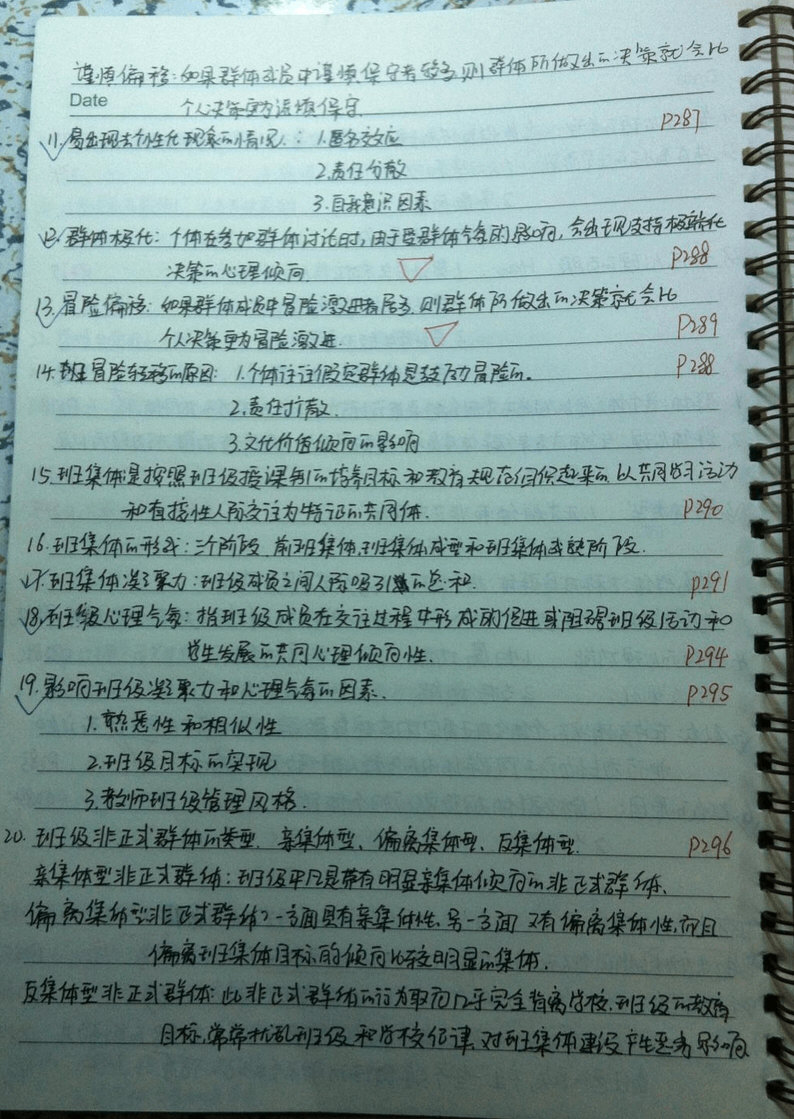 谨慎偏移:如果群体成员中谨慎保守者较多,则群体所做出的决策就会比
Date 个人决策更为谨慎保守
11.易出现去个性化现象的情况:1.匿名效应 P287
2.责任分散
3.自我意识因素
12.群体极化:个体在参加群体讨论时,由于受群体气氛的影响,会出现支持极端化
决策的心理倾向. P288
13.冒险偏移:如果群体成员中冒险激进者居多,则群体所做出的决策就会比
个人决策更为冒险激进. P289
14.冒险转移的原因:1.个体往往假定群体是鼓励冒险的。 P288
2.责任扩散.
3.文化价值倾向的影响
15.班集体是按照班级授课制的培养目标和教育规范组织起来的,以共同学习活动
和直接性人际交往为特征的共同体. P290
16.班集体的形成:三个阶段,前班集体,班集体成型和班集体成熟阶段.
17.班集体凝聚力:班级成员之间人际吸引的总和. P291
18.班级心理气氛:指班级成员在交往过程中形成的促进或阻碍班级活动和
学生发展的共同心理倾向性. P294
19.影响班级凝聚力和心理气氛的因素. P295
1.熟悉性和相似性
2.班级目标的实现
3.教师班级管理风格.
20.班级非正式群体的类型.亲集体型、偏离集体型、反集体型. P296
亲集体型非正式群体:班级中凡是带有明显亲集体倾向的非正式群体.
偏离集体型非正式群体:一方面具有亲集体性,另一方面又有偏离集体性,而且
偏离班集体目标的倾向比较明显的集体.
反集体型非正式群体:此非正式群体的行为取向几乎完全背离学校、班级的教育
目标,常常扰乱班级和学校纪律,对班集体建设产生恶劣影响